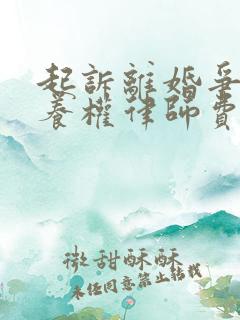 起訴離婚爭
養權律師費
微甜酥酥
未经同意禁止转载